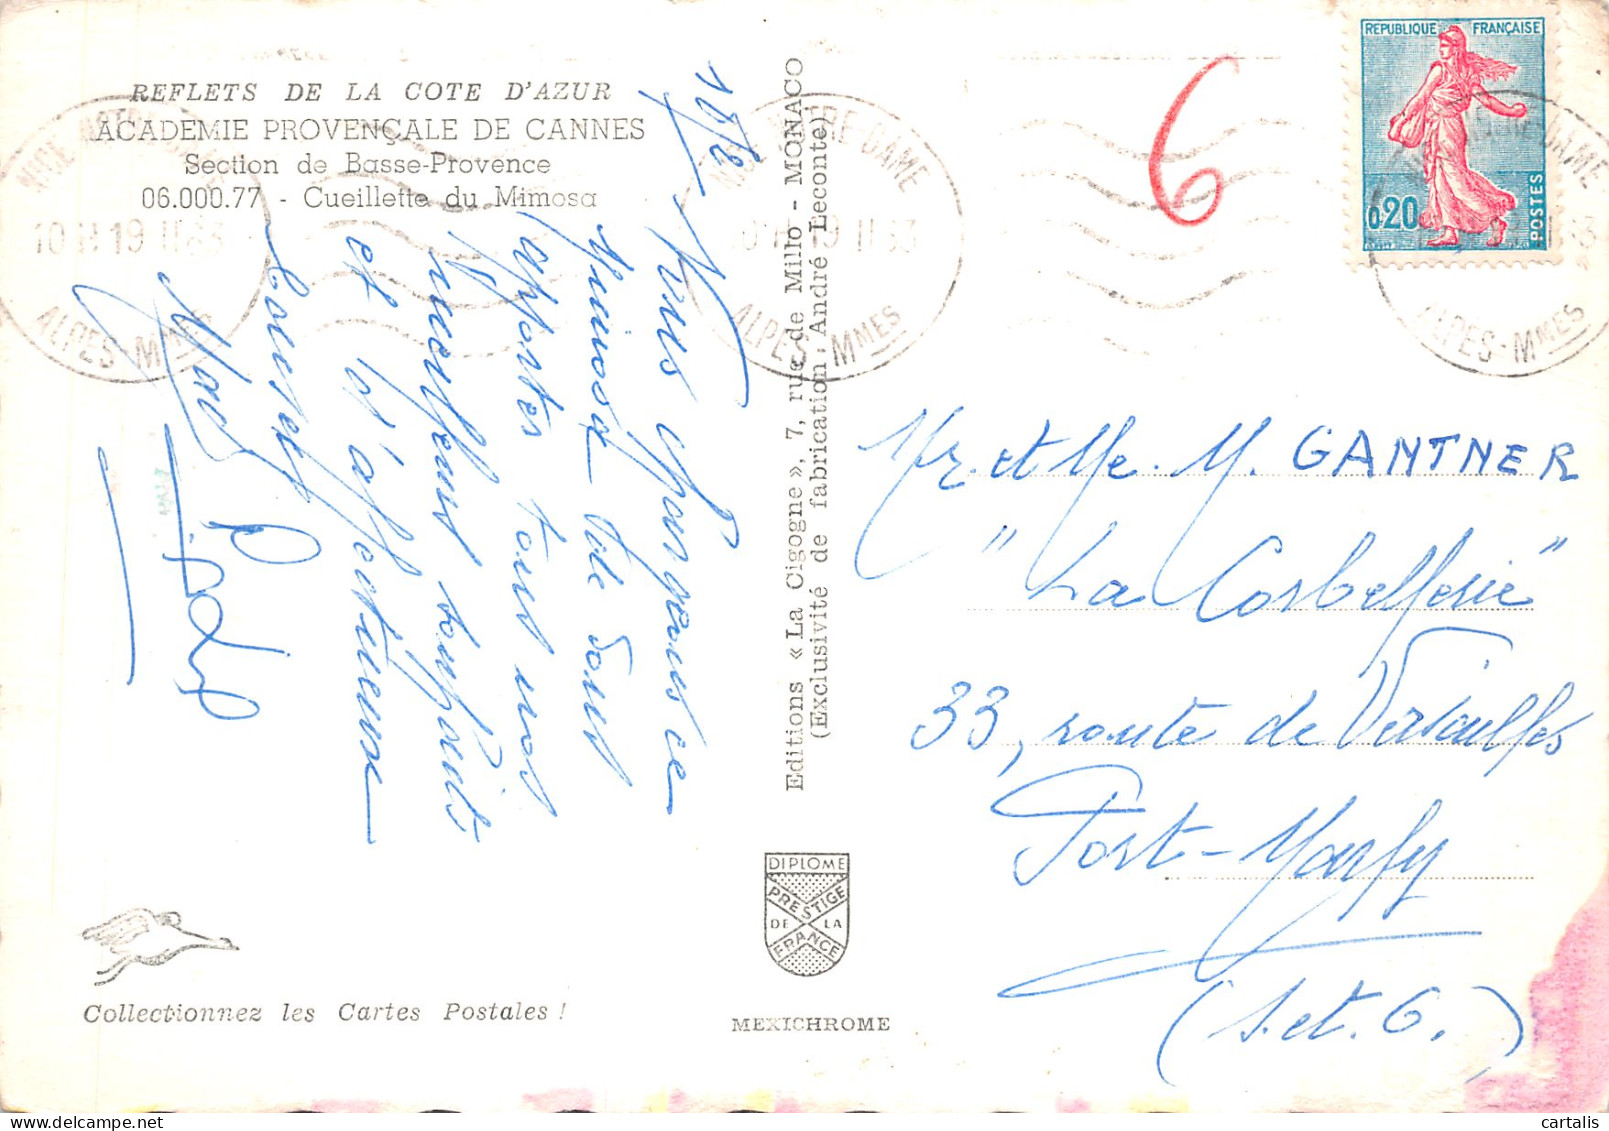 REFLETS DE LA COTE D'AZUR
ACADEMIE PROVENÇALE DE CANNES
Section de Basse-Provence
06.000.77 - Cueillette du Mimosa
NICE NOTRE-DAME
10 H 19 II
ALPES-MMES
NOTRE-DAME
19 II
ALPES-MMES
DAME
ALPES-MMES
REPUBLIQUE FRANÇAISE
0,20
POSTES
6
Nice
Nous chargeons ce
Mimosa de vous
apporter tout nos
meilleurs souhaits
et d'affectueux
baisers
Mady
Editions « La Cigogne », 7, rue de Millo - MONACO
(Exclusivité de fabrication : André Leconte)
Mr. et Me. M. GANTNER
"La Corbellerie"
33, route de Versailles
Port-Marly
(S. et. O.)
DIPLOME
PRESTIGE
DE LA
FRANCE
Collectionnez les Cartes Postales !
MEXICHROME
cartalis